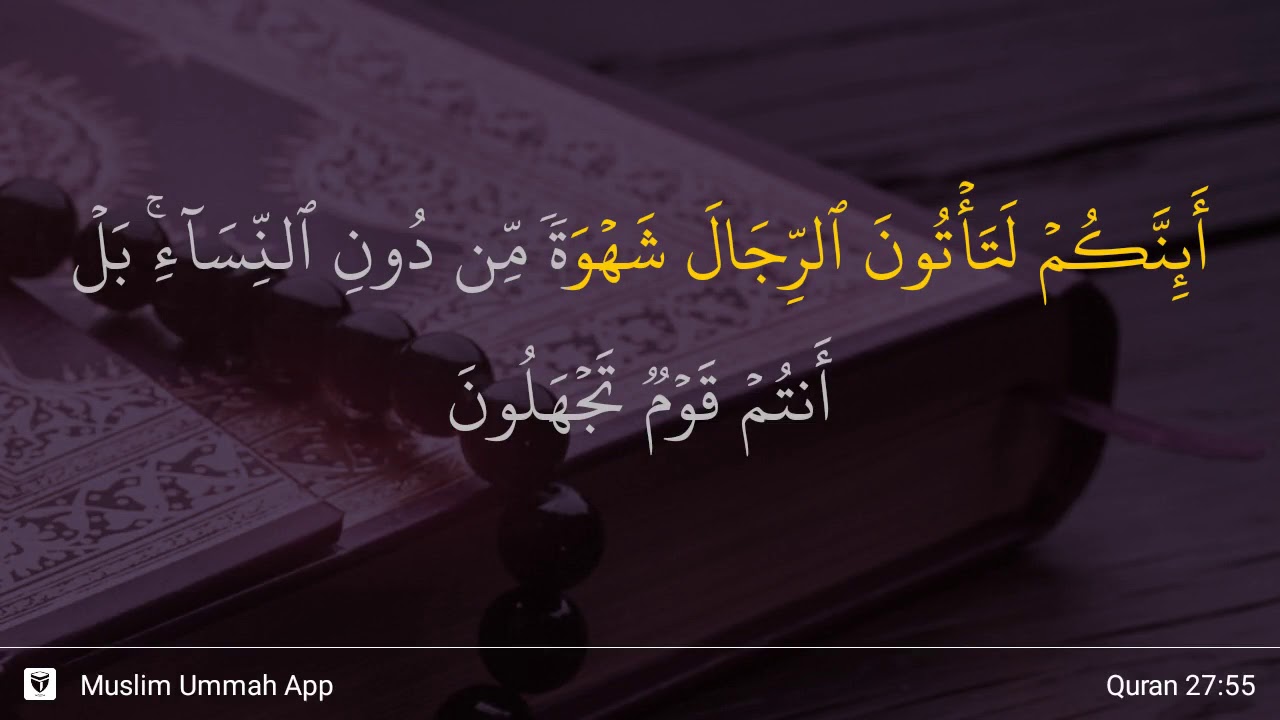 أَئِنَّكُمۡ لَتَأۡتُونَ ٱلرِّجَالَ شَهۡوَةٗ مِّن دُونِ ٱلنِّسَآءِۚ بَلۡ
أَنتُمۡ قَوۡمٞ تَجۡهَلُونَ
Muslim Ummah App
Quran 27:55